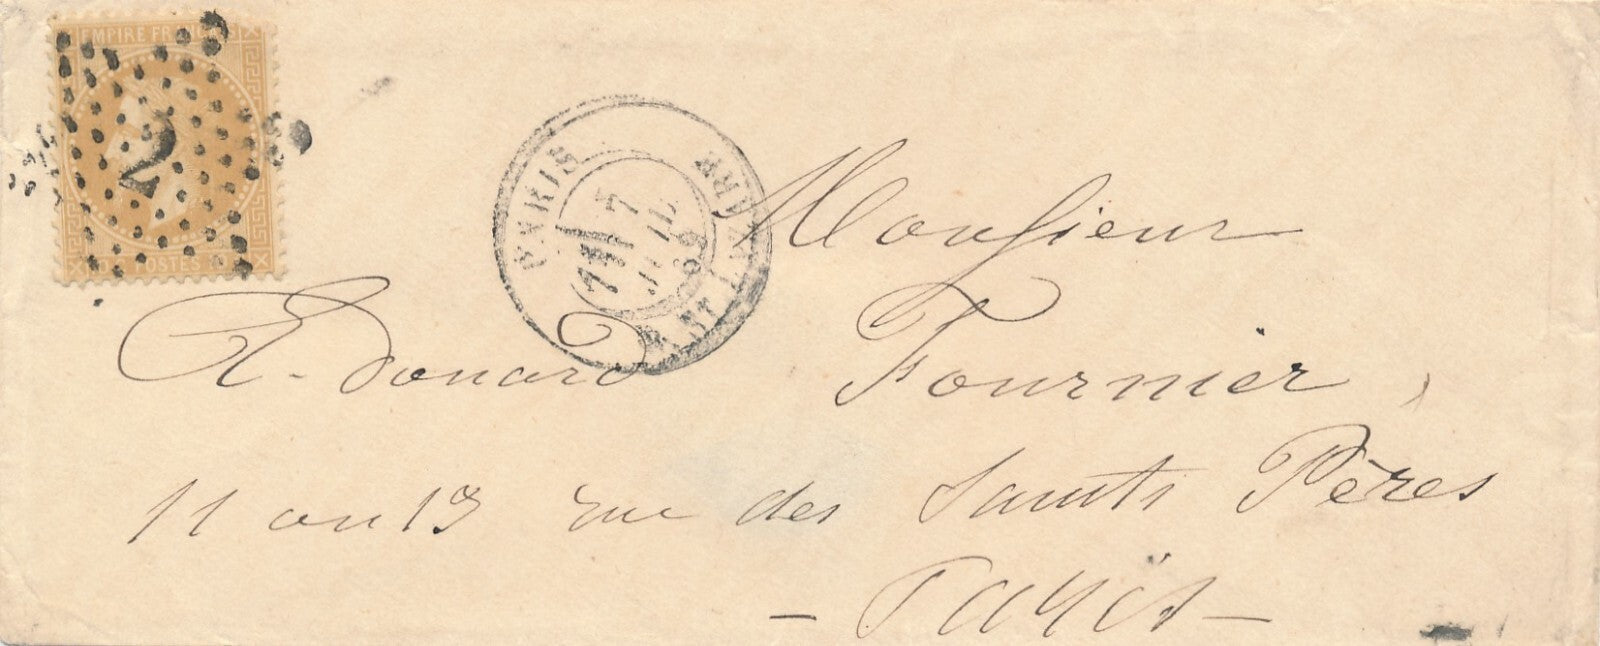 EMPIRE FRANC
2
POSTES
PARIS
R. ST LAZARE
7
JUIL
69
Monsieur
Edouard Fournier,
11 ou 13 rue des Saints Pères
- Paris -